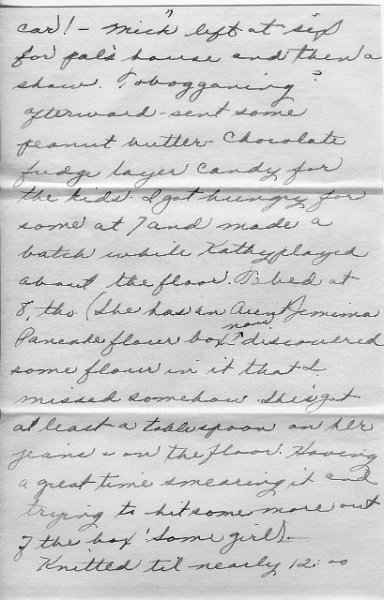 car! - Mick left at six
for pal's house and then a
show. Tobogganing?
afterward - sent some
peanut butter - Chocolate
fudge layer candy for
the kids. I got hungry for
some at 7 and made a
batch while Kathy played
about the floor. To bed at
8, tho. (She has an Aunt Jemima
Pancake flour box now & discovered
some flour in it that I
missed somehow. She's got
at least a tablespoon on her
jeans & on the floor. Having
a great time smearing it and
trying to hit some more out
of the box! Some girl) -
Knitted til nearly 12:00